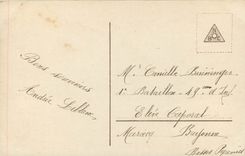 Bons souvenirs
André Leblanc
Mr Camille
1er Bataillon 49me d'Inf
Elève Caporal
Bayonne
Basses Pyrénées